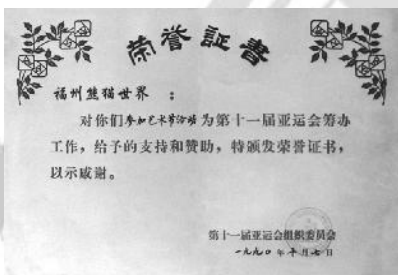 荣誉証書
福州熊猫世界：
对你们参加艺术节活动为第十一届亚运会筹办
工作，给予的支持和赞助，特颁发荣誉证书，
以示感谢。
第十一届亚运会组织委员会
一九九〇年十月七日